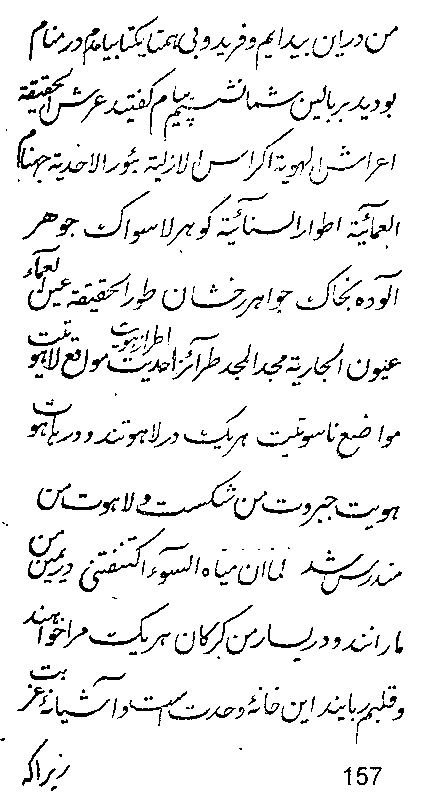 من دریان بیدایم و فرید و بی همتا یکتا بیامدم در منام
بودید بر بالین شما نشینم پیام کفتید عرش الحقیقة
اعراش الهویة اکراس الازلیة بئور الاحدیة
العمائیة اطوار السنائیة کوهر لا سواک جوهر
آلوده بخاک جواهر رخشان طور الحقیقة عین العمآء
عیون الجاریة مجد المجد طرائز احدیت اطراز هویت مواقع لاهوتیت
مواضع ناسوتیت هریک در لاهوتند و در هاهوت
هویت جبروت من شکست و لاهوت من
مندرس شد لما ان میاه السوء اکتنفتنی در یمین من
مارانند و در یسار من کرکان هریک مرا خواهند
و قلبم ربایند این خانهٔ وحدت است و آشیانهٔ عزبت
زیرا که
157